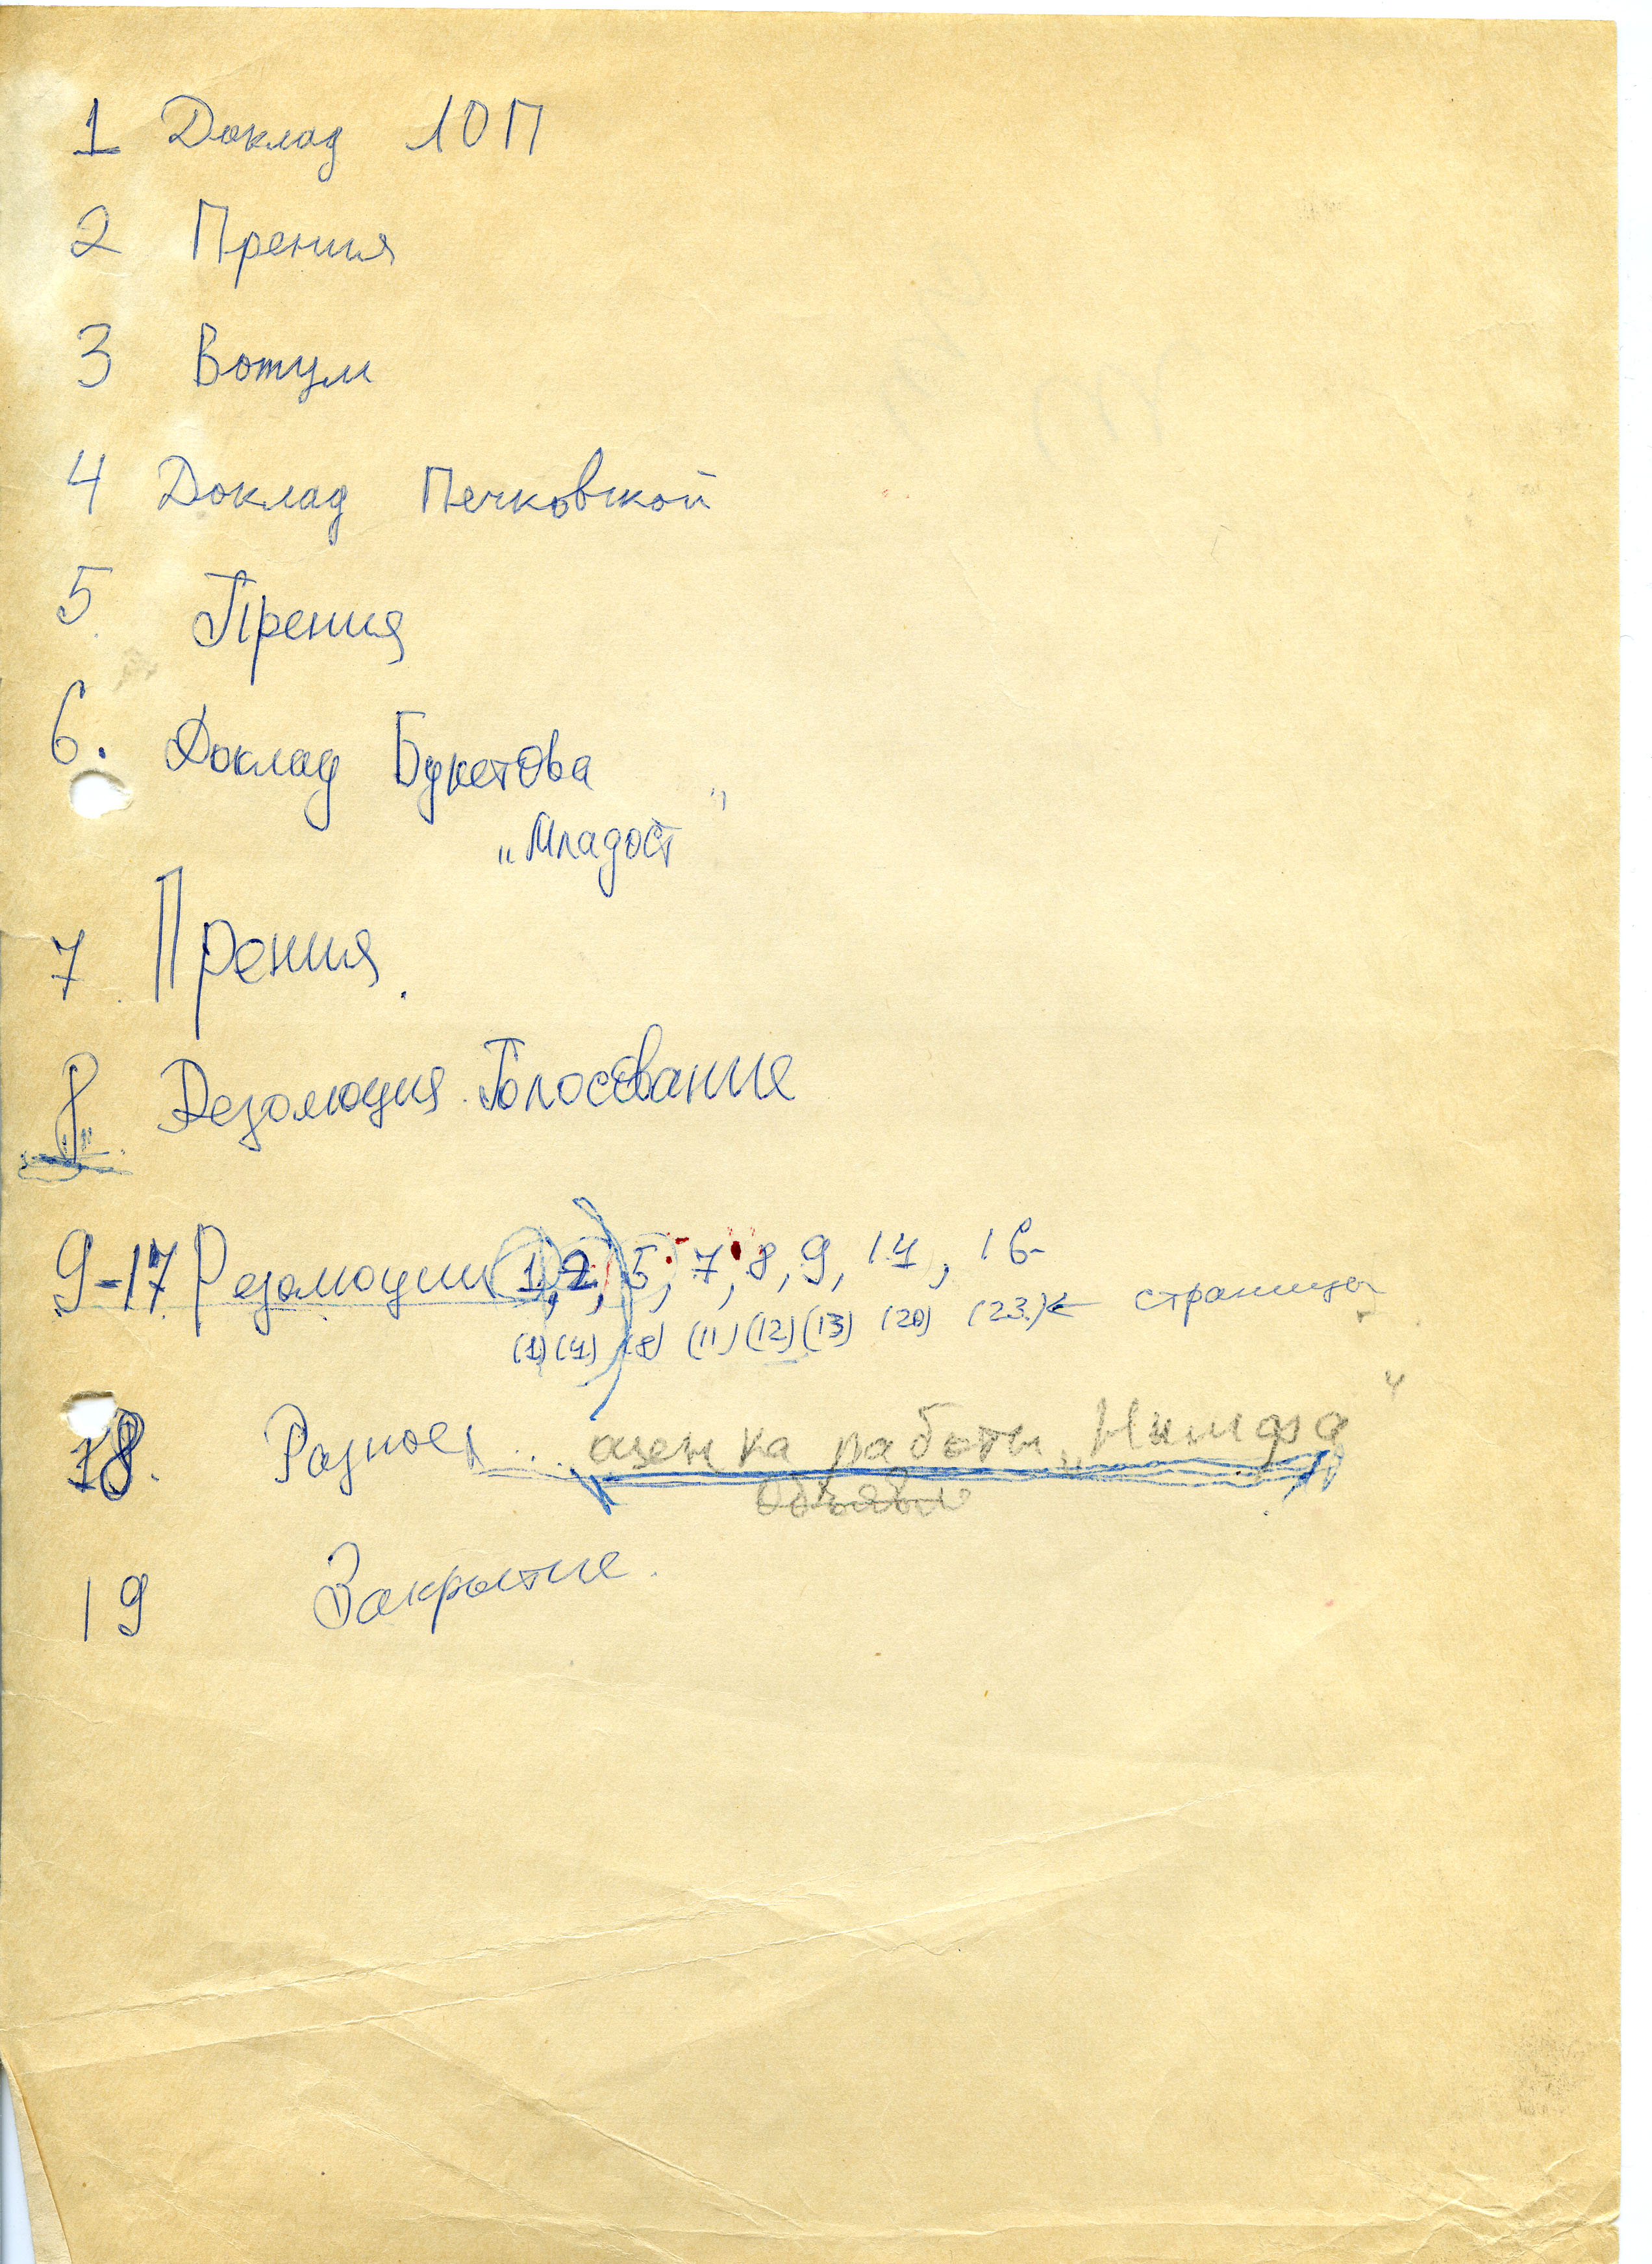 1 Доклад ЮП
2 Прения
3 Вотум
4 Доклад Печковской
5. Прения
6. Доклад Букетова
„Младост"
7. Прения.
8 Резолюция. Голосование
9-17 Резолюции 1, 2, 5, 7, 8, 9, 14, 16
(1) (4) (8) (11) (12) (13) (20) (23) ← страницы
18. Разное оценка работы „Нимфа"
19 Закрытие.